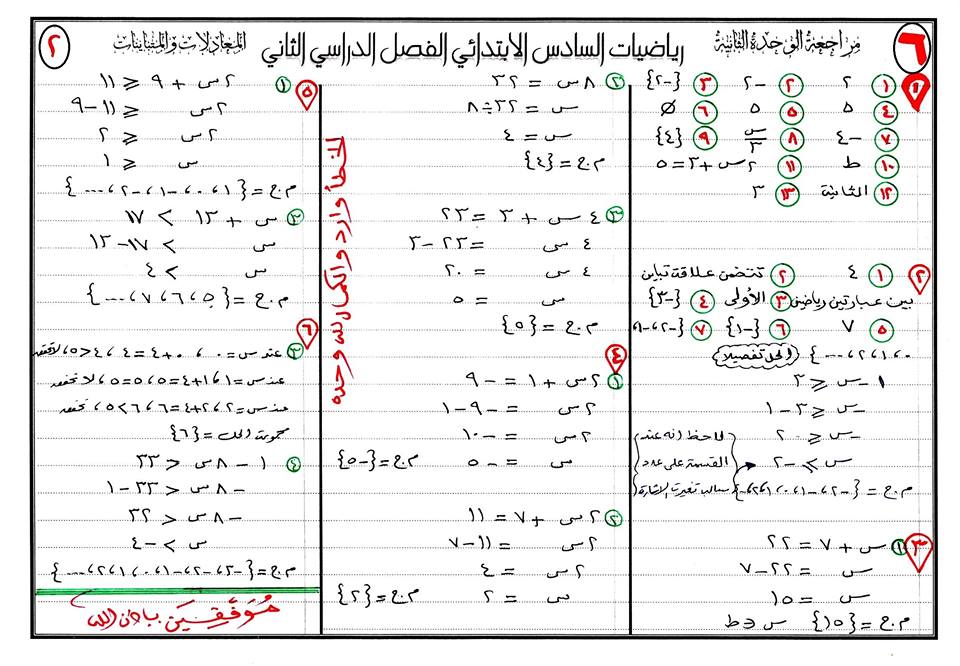 ٦ مراجعة الوحدة الثانية رياضيات السادس الابتدائي الفصل الدراسي الثاني المعادلات والمتباينات ٢
١ ① ٢ ② -٢ ③ {-٢}
④ ٥ ⑤ ٥ ⑥ ∅
⑦ -٤ ⑧ س/٣ ⑨ {٤}
⑩ ط ⑪ ٢س+٣=٥
⑫ الثانية ⑬ ٣
٢ ① ٤ ② تتضمن علاقة تباين
بين عبارتين رياضيتين ③ الأولى ④ {-٣}
⑤ ٧ ⑥ {-١} ⑦ {-٢،-١،
٠،١،٢،...} الحل تفصيلاً
١-س ≤ ٣
-س ≤ ٣-١
-س ≤ ٢
س ≥ -٢ (لاحظ إنه عند القسمة على عدد سالب تغيرت الإشارة)
م.ح = {-٢،-١،٠،١،٢،...}
٣ ① س + ٧ = ٢٢
س = ٢٢-٧
س = ١٥
م.ح = {١٥} س ∈ ط
② ٨س = ٣٢
س = ٣٢÷٨
س = ٤
م.ح = {٤}
③ ٤س + ٣ = ٢٣
٤س = ٢٣-٣
٤س = ٢٠
س = ٥
م.ح = {٥}
٤
① ٢س + ١ = -٩
٢س = -٩-١
٢س = -١٠
س = -٥ م.ح = {-٥}
② ٢س + ٧ = ١١
٢س = ١١-٧
٢س = ٤
س = ٢ م.ح = {٢}
الخطأ وارد والكمال لله وحده
٥ ① ٢س + ٩ ≥ ١١
٢س ≥ ١١-٩
٢س ≥ ٢
س ≥ ١
م.ح = {١،٠،-١،-٢،...}
② س + ١٣ < ١٧
س < ١٧-١٣
س < ٤
م.ح = {٥،٦،٧،...}
٦
③ عند س=٠، ٠+٤=٤، ٤>٥ لا تحقق
عند س=١، ١+٤=٥، ٥=٥ لا تحقق
عند س=٢، ٢+٤=٦، ٦<٥، تحقق
مجموعة الحل = {٦}
④ ١-٨س > ٣٣
-٨س > ٣٣-١
-٨س > ٣٢
س < -٤
م.ح = {-٣،-٢،-١،٠،١،٢،...}
موفقين بإذن الله